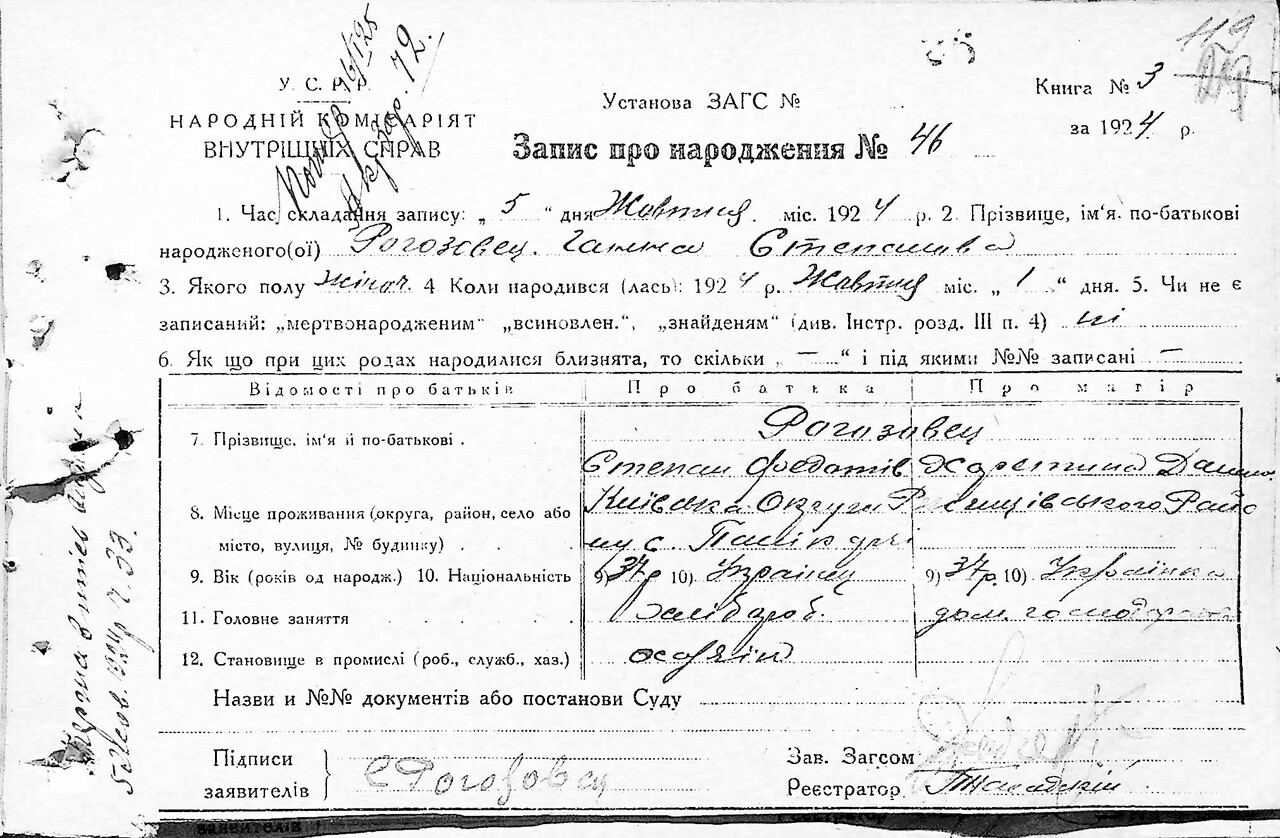 119
У. С. Р. Р.
НАРОДНІЙ КОМІСАРІЯТ
ВНУТРІШНІХ СПРАВ
Установа ЗАГС №
Книга № 3
за 1924 р.
Запис про народження № 46
1. Час складання запису: „ 5 “ дня Жовтня міс. 1924 р. 2. Прізвище, ім'я, по-батькові
народженого(ої) Рогозовец Ганна Степанова
3. Якого полу жіноч. 4 Коли народився (лась): 1924 р. Жовтня міс. „ 1 “ дня. 5. Чи не є
записаний: „мертвонародженим“ „всиновлен.“, „знайденям“ (див. Інстр. розд. III п. 4) ні
6. Як що при цих родах народилися близнята, то скільки „ — “ і під якими №№ записані —
Відомості про батьків Про батька Про матір
7. Прізвище, ім'я й по-батькові . Рогозовец
Степан Федотів Харетина
8. Місце проживання (округа, район, село або Київська Округи Райо
місто, вулиця, № будинку) . . ну с.
9. Вік (років од народж.) 10. Національність 9) 34р 10) Українец 9) 34р 10) Українка
11. Головне заняття хлібороб. дом.
12. Становище в промислі (роб., служб., хаз.) хозяїн
Назви и №№ документів або постанови Суду
Підписи
заявителів
С Рогозовец
Зав. Загсом
Реєстратор